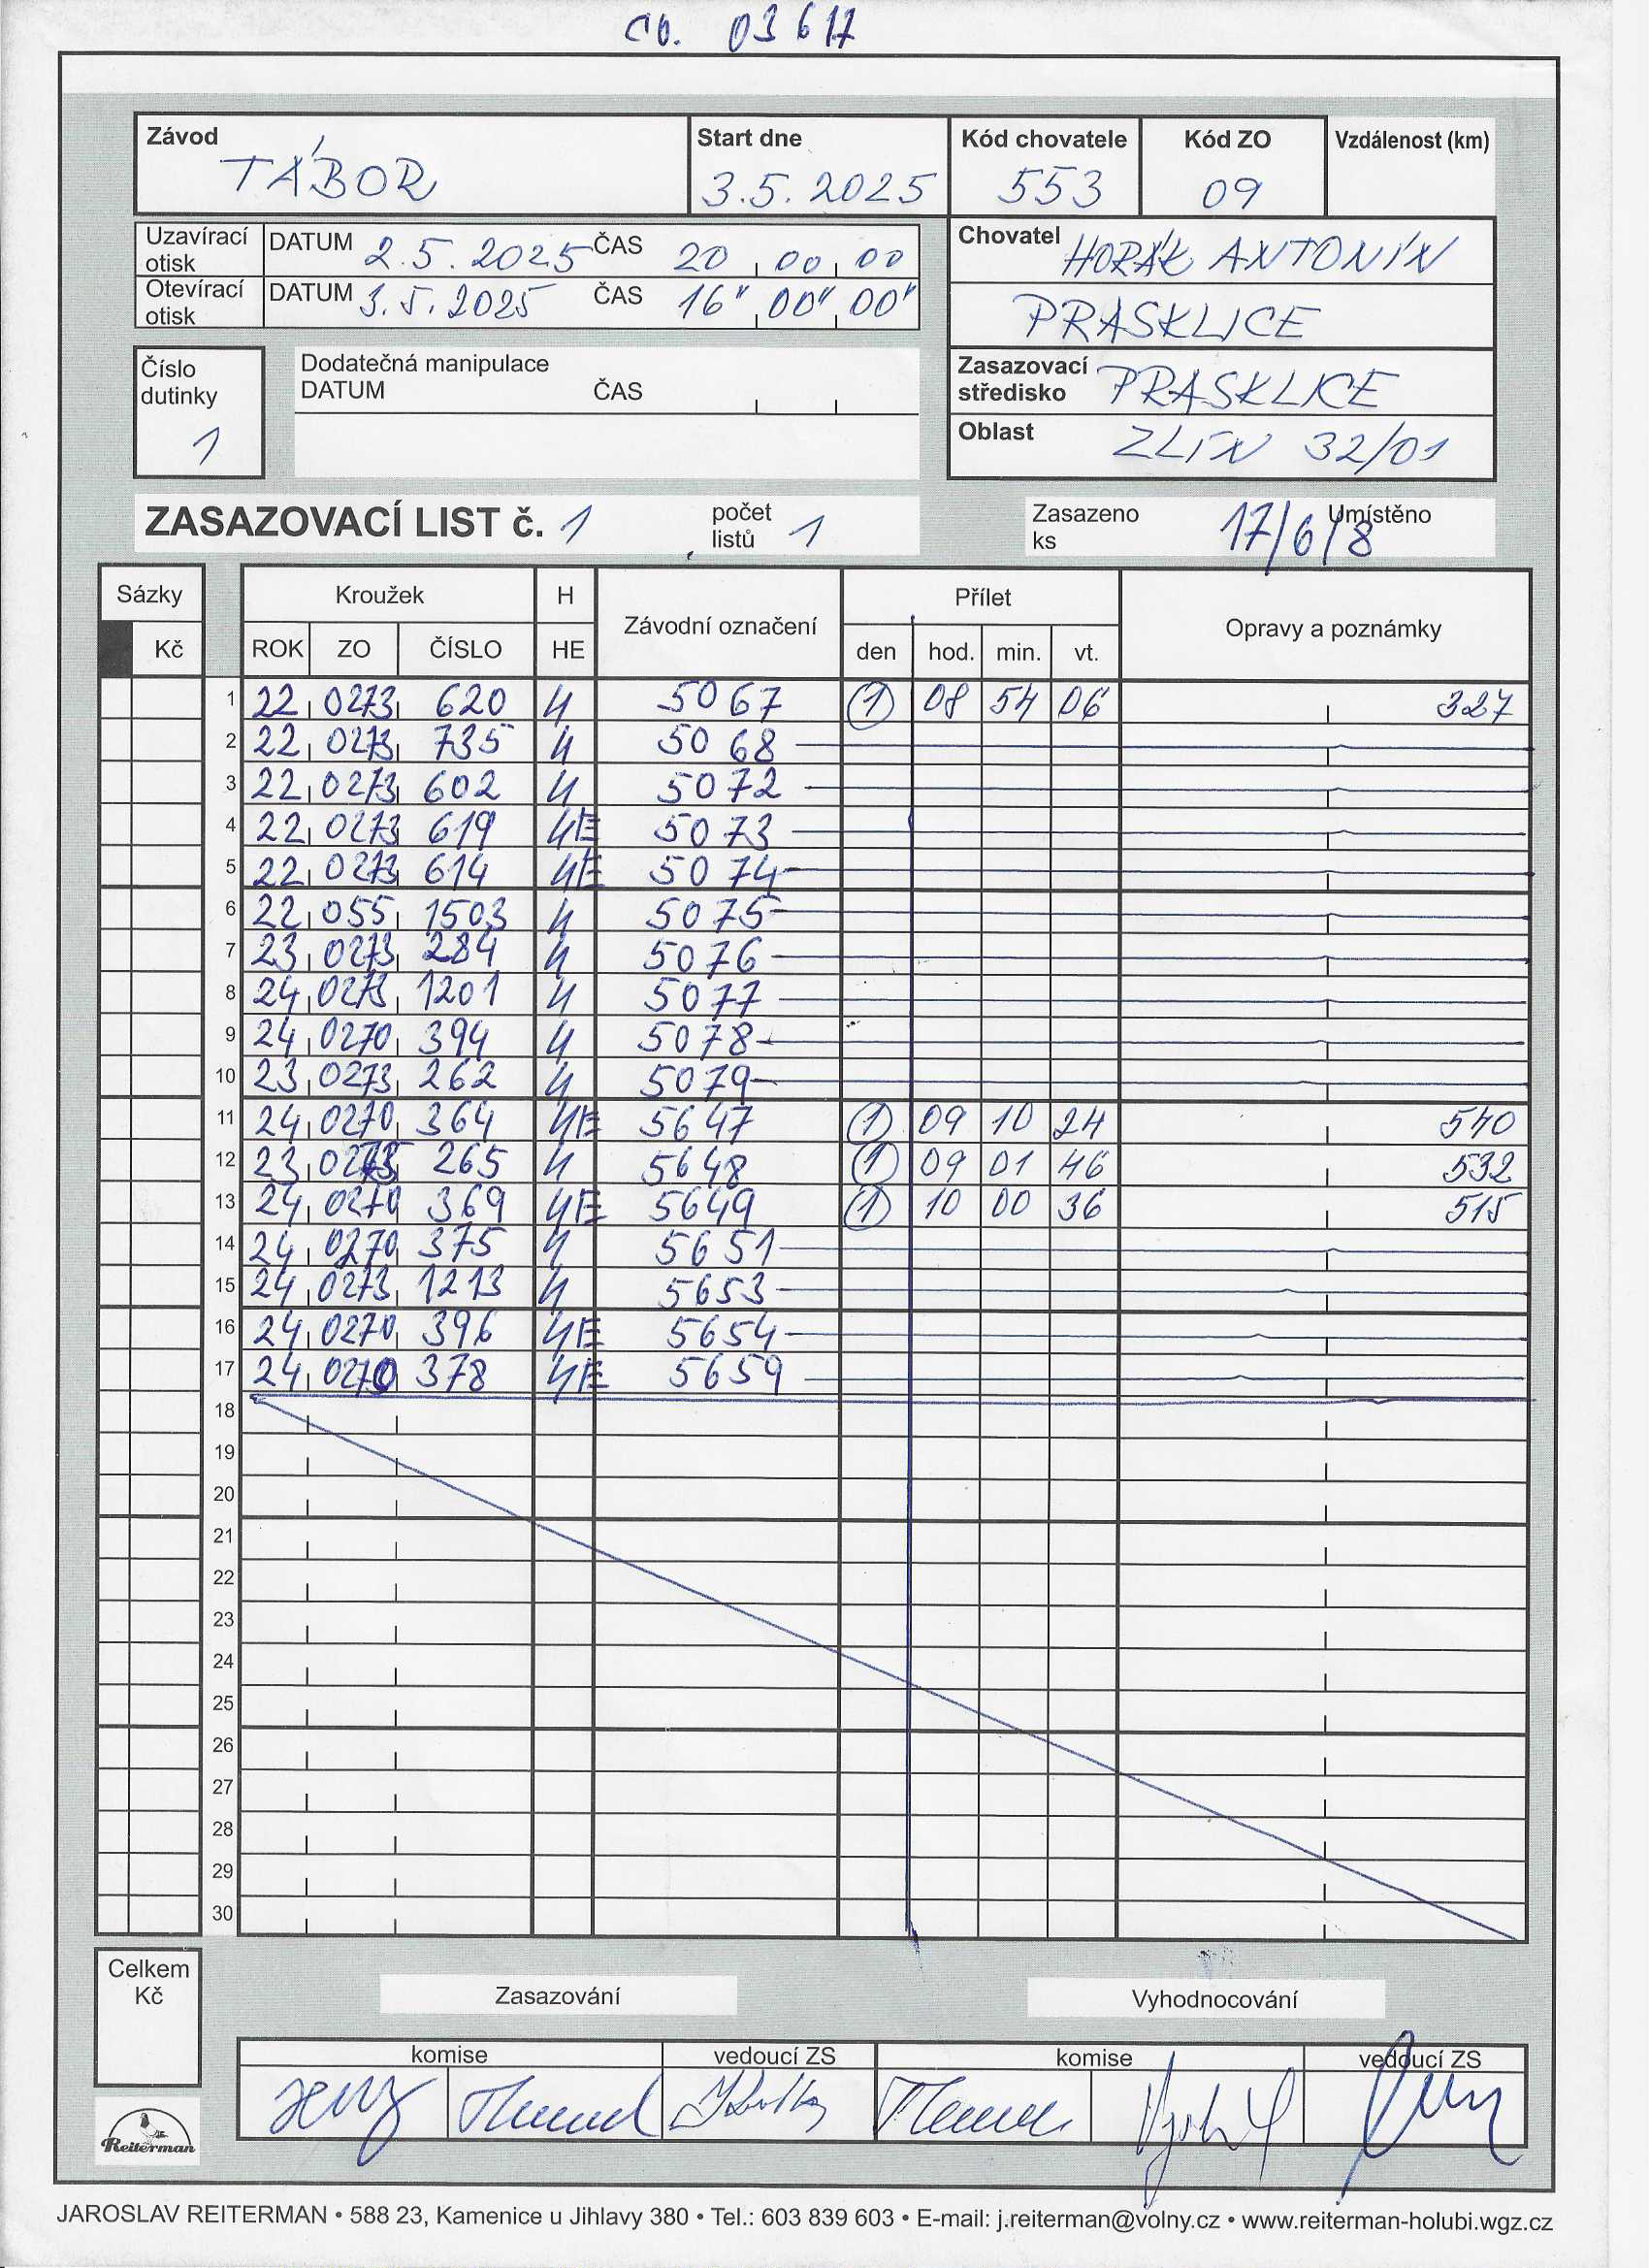 čo. 03617
Závod Start dne Kód chovatele Kód ZO Vzdálenost (km)
TÁBOR 3.5.2025 553 09
Uzavírací otisk DATUM 2.5.2025 ČAS 20 00 00
Otevírací otisk DATUM 3.5.2025 ČAS 16" 00" 00"
Chovatel HORÁK ANTONÍN
PRASKLICE
Číslo dutinky 1
Dodatečná manipulace
DATUM ČAS
Zasazovací středisko PRASKLICE
Oblast ZLÍN 32/01
ZASAZOVACÍ LIST č. 1 počet listů 1 Zasazeno ks 17/6/8 Umístěno
Sázky Kroužek H Závodní označení Přílet Opravy a poznámky
Kč ROK ZO ČÍSLO HE den hod. min. vt.
1 22 0273 620 H 5067 1 08 54 06 327
2 22 0273 735 H 5068
3 22 0273 602 H 5072
4 22 0273 619 HE 5073
5 22 0273 614 HE 5074
6 22 055 1503 H 5075
7 23 0273 284 H 5076
8 24 0273 1201 H 5077
9 24 0270 394 H 5078
10 23 0273 262 H 5079
11 24 0270 364 HE 5647 1 09 10 24 540
12 23 0273 265 H 5648 1 09 01 46 532
13 24 0270 369 HE 5649 1 10 00 36 515
14 24 0270 375 H 5651
15 24 0273 1213 H 5653
16 24 0270 396 HE 5654
17 24 0270 378 HE 5659
18
19
20
21
22
23
24
25
26
27
28
29
30
Celkem Kč
Zasazování Vyhodnocování
komise vedoucí ZS komise vedoucí ZS
Reiterman
JAROSLAV REITERMAN • 588 23, Kamenice u Jihlavy 380 • Tel.: 603 839 603 • E-mail: j.reiterman@volny.cz • www.reiterman-holubi.wgz.cz